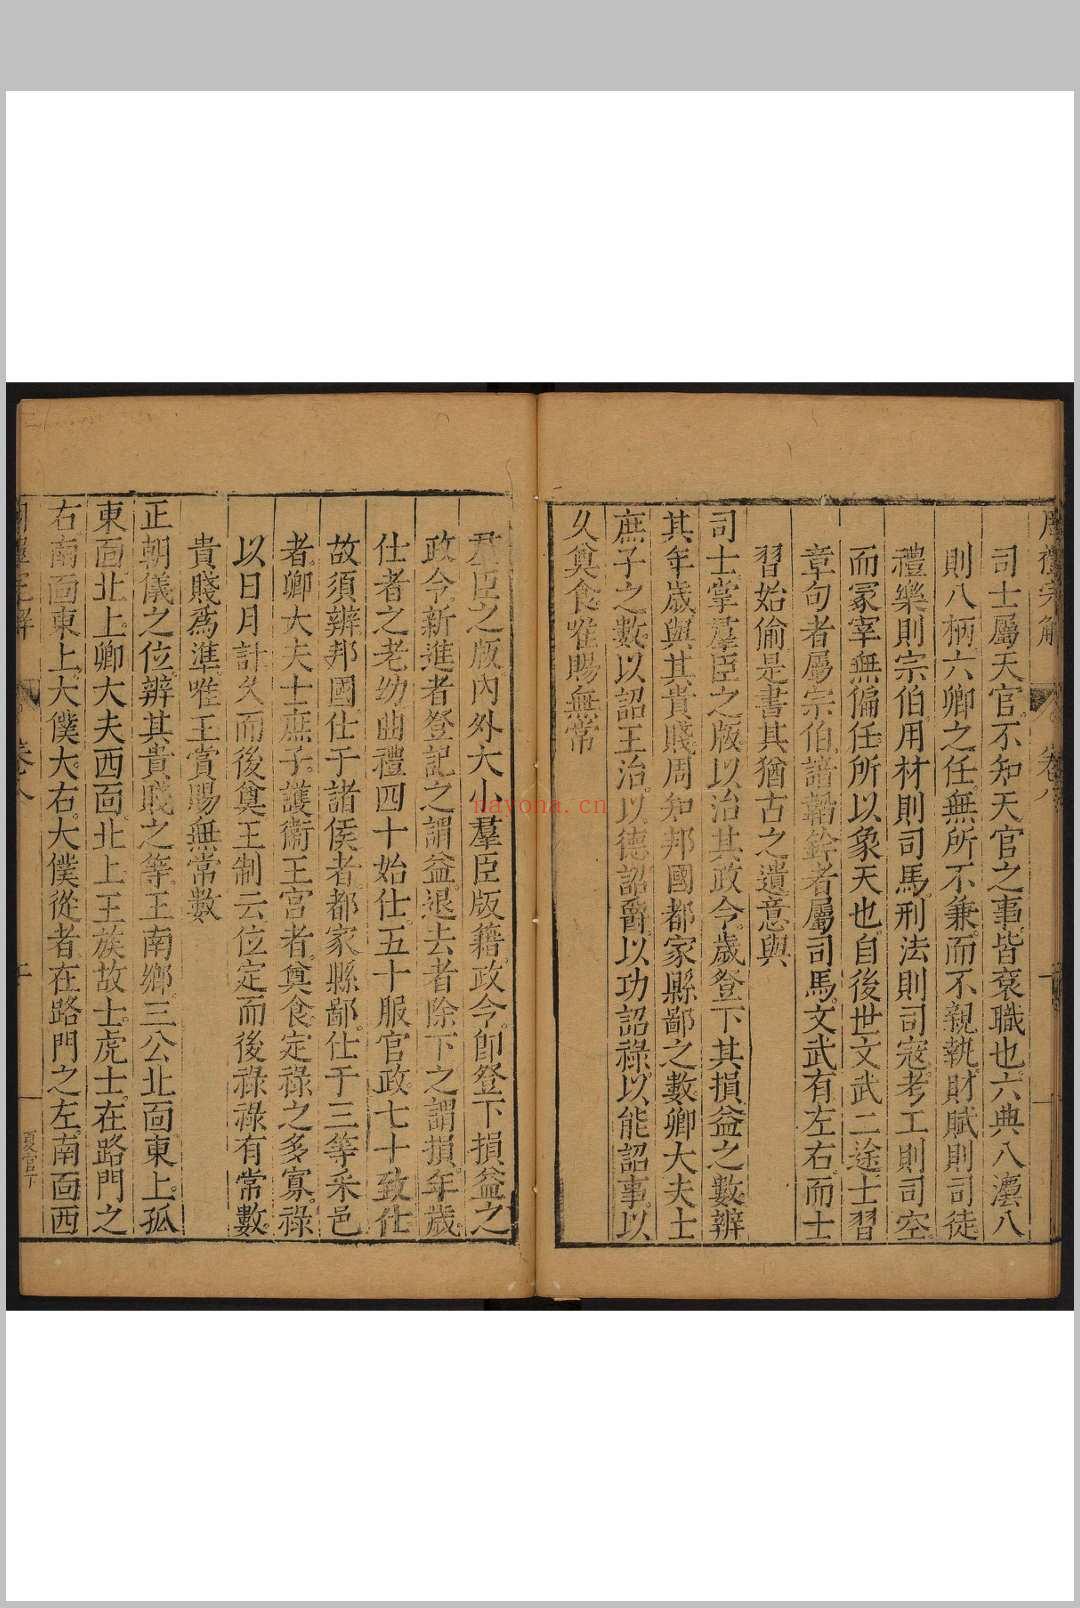 周禮完解 卷八
司士屬天官。不知天官之事。皆衮職也。六典八灋八
則八柄六卿之任。無所不兼。而不親執。財賦則司徒
禮樂則宗伯。用材則司馬。刑法則司寇。考工則司空
而冢宰無偏任。所以象天也。自後世文武二途。士習
章句者屬宗伯。諳韜鈐者屬司馬。文武有左右。而士
習始偷。是書其猶古之遺意與
司士掌羣臣之版。以治其政令。歲登下其損益之數。辨
其年歲與其貴賤。周知邦國都家縣鄙之數。卿大夫士
庶子之數。以詔王治。以德詔爵。以功詔祿。以能詔事。以
久奠食。唯賜無常
羣臣之版。內外大小羣臣版籍。政令。卽登下損益之
政令。新進者登記之謂益。退去者除下之謂損。年歲。
仕者之老幼。曲禮四十始仕。五十服官政。七十致仕
故須辨。邦國仕于諸侯者。都家縣鄙。仕于三等采邑
者。卿大夫士庶子。護衞王宮者。奠食。定祿之多寡。祿
以日月計。久而後奠。王制云位定而後祿。祿有常數。
貴賤爲準。唯王賞賜無常數
正朝儀之位。辨其貴賤之等。王南鄉。三公北面東上。孤
東面北上。卿大夫西面。北上。王族故士。虎士。在路門之
右。南面東上。大僕。大右。大僕從者。在路門之左。南面西
卷八
夏官下
nayona.cn